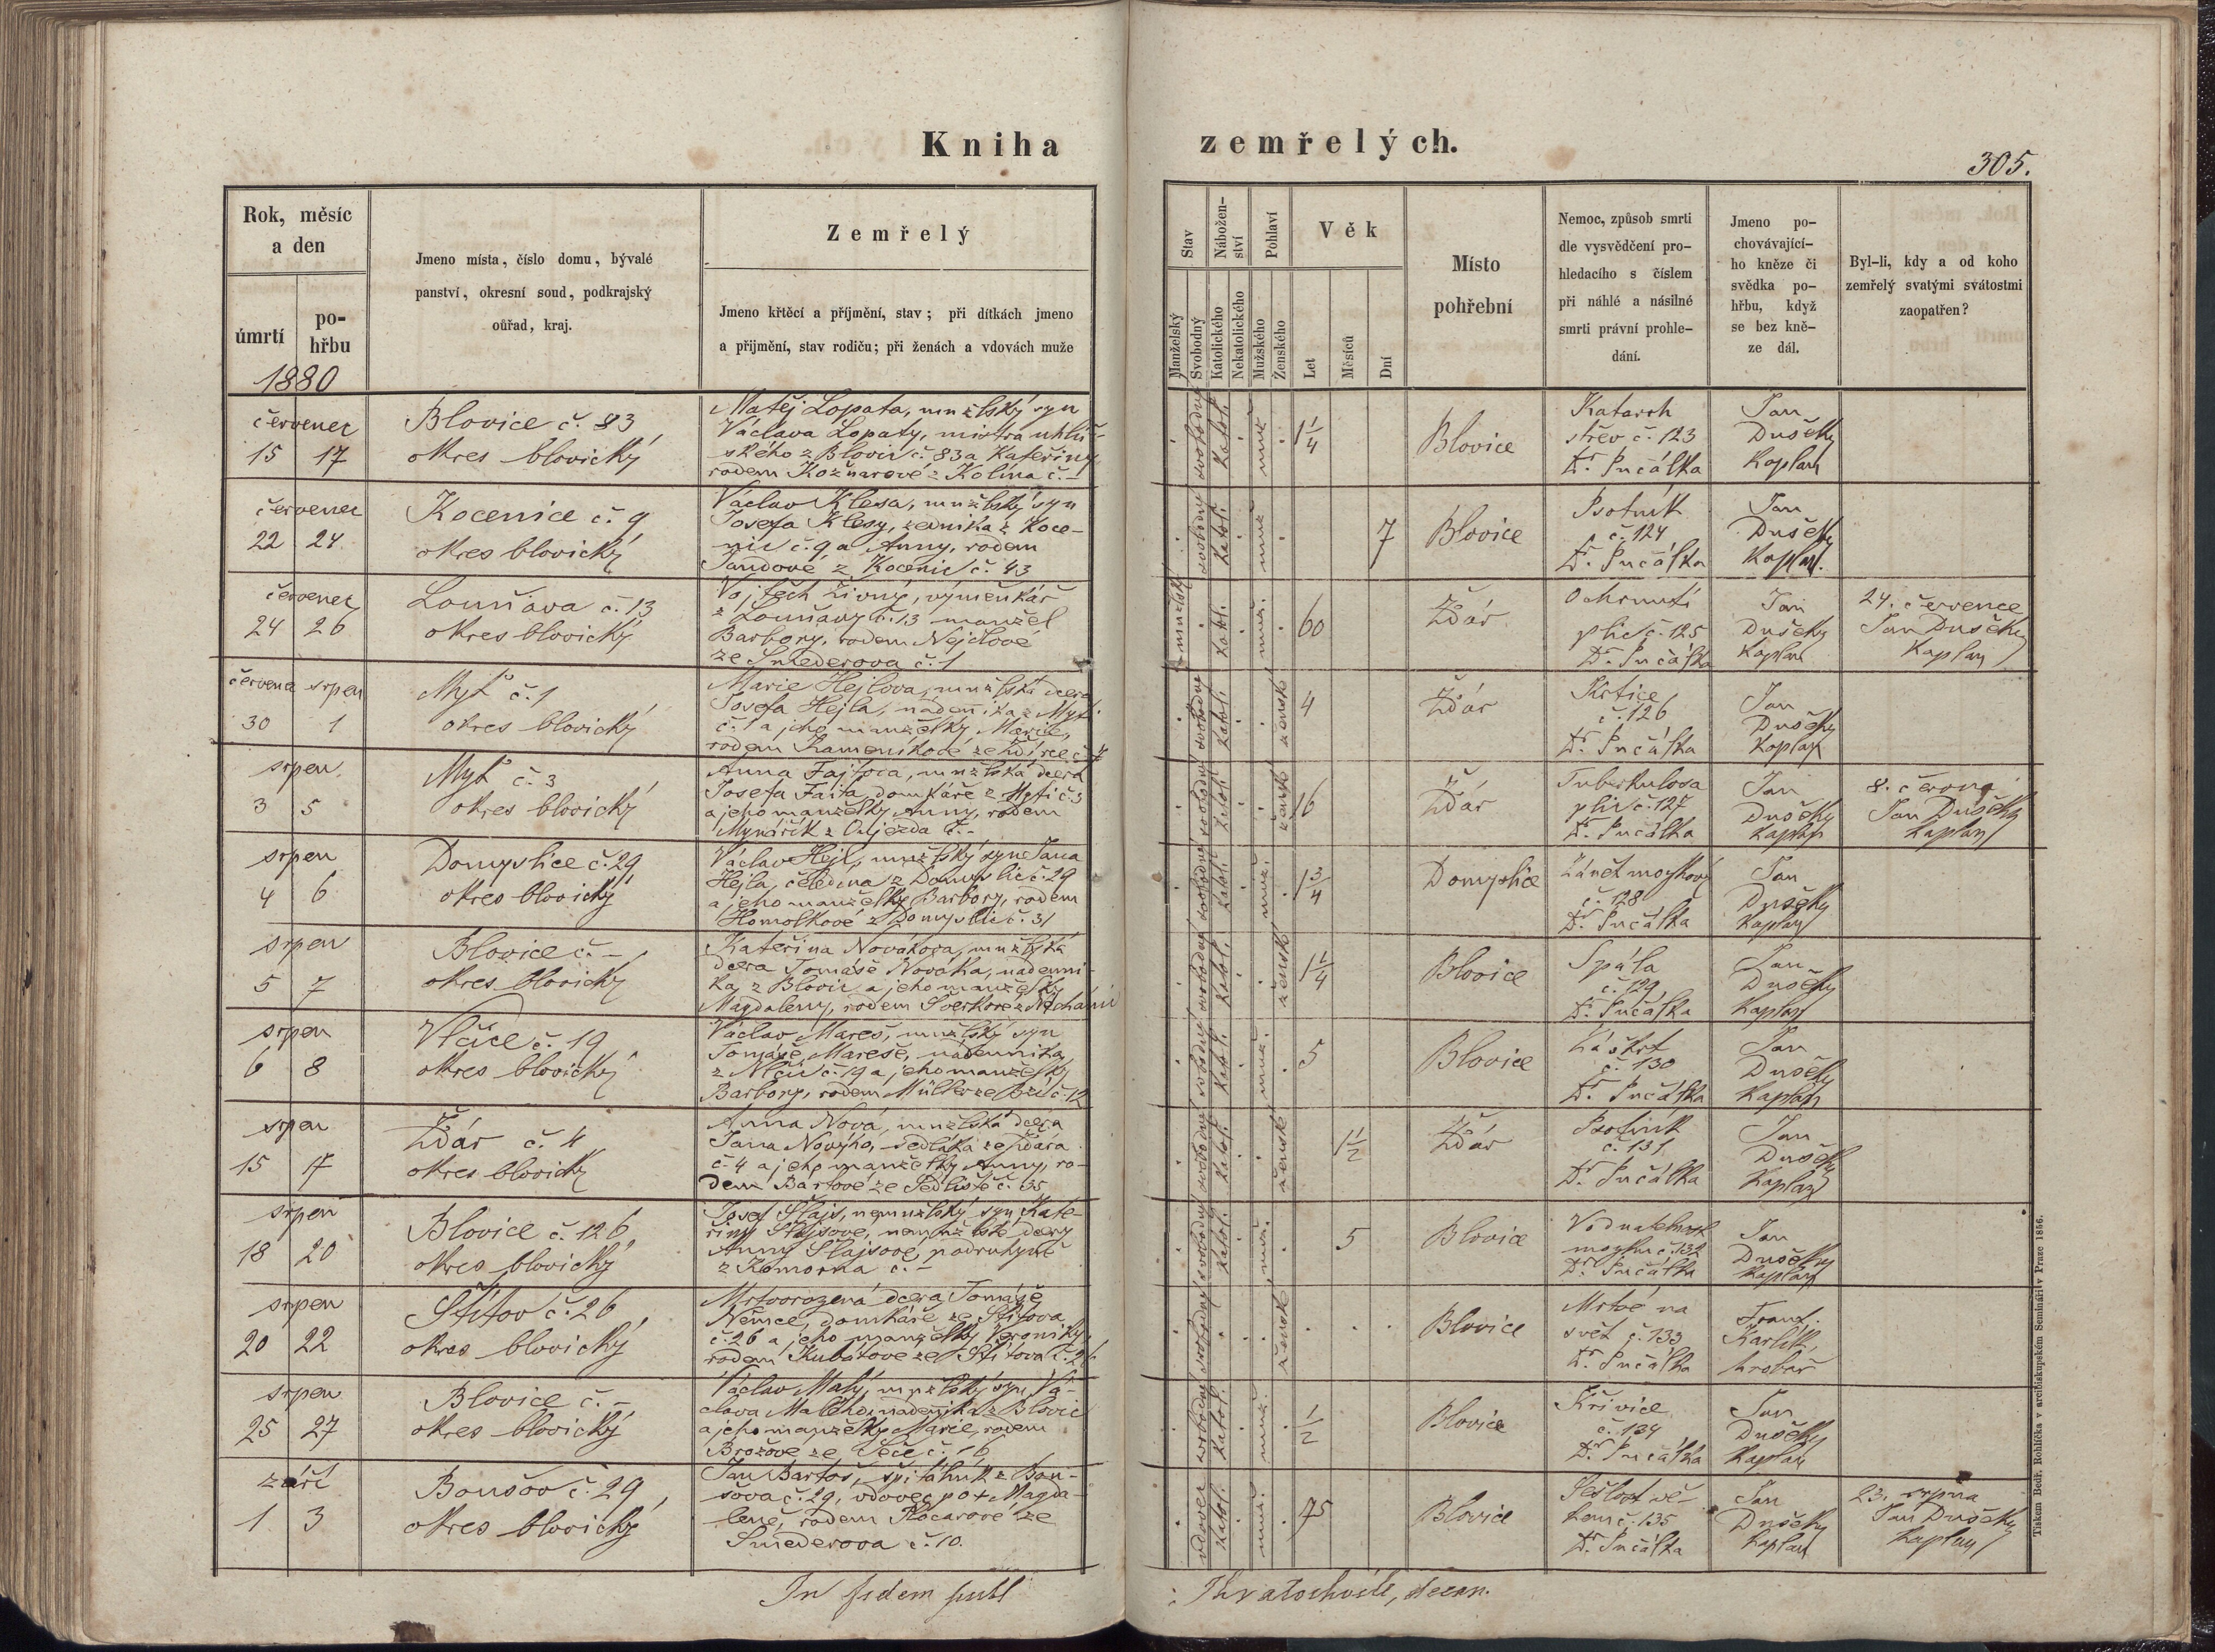 Kniha
zemřelých.
305.
Rok, měsíc
a den
úmrtí
po-
hřbu
1880
Jmeno místa, číslo domu, bývalé
panství, okresní soud, podkrajský
ouřad, kraj.
Zemřelý
Jmeno křtěcí a příjmění, stav; při dítkách jmeno
a přijmění, stav rodičů; při ženách a vdovách muže
Stav
Nábožen-
ství
Pohlaví
Věk
Manželský
Svobodný
Katolického
Nekatolického
Mužského
Ženského
Let
Měsíců
Dní
Místo
pohřební
Nemoc, způsob smrti
dle vysvědčení pro-
hledacího s číslem
při náhlé a násilné
smrti právní prohle-
dání.
Jmeno po-
chovávající-
ho kněze či
svědka po-
hřbu, když
se bez kně-
ze dál.
Byl-li, kdy a od koho
zemřelý svatými svátostmi
zaopatřen?
červenec
15 17
Blovice č. 83
okres blovický
Matěj Lopata, mnžlský syn
Václava Lopaty, mistra uhlíř-
ského z Blovic č. 83 a Kateřiny
rodem Kožnarové z Kolína č. –
svobodný katol. muž. 1 1/4
Blovice
Katarrh
střev č. 123
Dr. Pučálka
Jan
Dušek
Kaplan
červenec
22 24
Kocenice č. 9
okres blovický
Václav Klesa, mnžlský syn
Josefa Klesy, zedníka z Koce-
nic č. 9 a Anny, rodem
Jandové z Kocenic č. 43
svobodný katol. muž. 7
Blovice
Psotník
č. 124
Dr. Pučálka
Jan
Dušek
Kaplan.
červenec
24 26
Louňava č. 13
okres blovický
Vojtěch Živný, výměnkář
z Louňavy č. 13 manžel
Barbory, rodem Nejdlové
ze Smederova č. 1
katol. muž. 60
Ždár
Ochrnutí
plic č. 125
Dr. Pučálka
Jan
Dušek
Kaplan
24. července
Jan Dušek
Kaplan
červena srpen
30 1
Mýť č. 1
okres blovický
Marie Hejlova, mnžlská dcera
Josefa Hejla, nádenníka z Mýti
č. 1 a jeho manželky Marie,
rodem Kameníkové ze Ždírce č. 7
svobodný katol. ženské 4
Ždár
Krtice
č. 126
Dr. Pučálka
Jan
Dušek
Kaplan
srpen
3 5
Mýť č. 3
okres blovický
Anna Fajtova, mnžlská dcera
Josefa Faita, domkáře z Mýti č. 3
a jeho manželky Anny, rodem
Mynářík z Oujezda č. –
svobodný katol. ženské 16
Ždár
Tuberkulosa
plic č. 127
Dr. Pučálka
Jan
Dušek
Kaplan
8. června
Jan Dušek
Kaplan
srpen
4 6
Domyslice č. 29
okres blovický
Václav Hejl, mnžlský syn Jana
Hejla, čeledína z Domyslic č. 29
a jeho manželky Barbory, rodem
Homolkové z Domyslic č. 31
svobodný katol. muž. 1 3/4
Domyslice
Zánět mozkový
č. 128
Dr. Pučálka
Jan
Dušek
Kaplan
srpen
5 7
Blovice č. –
okres blovický
Kateřina Novákova, mnžlská
dcera Tomáše Nováka, nádenní-
ka z Blovic a jeho manželky
Magdaleny, rodem
svobodný katol. ženské 1 1/4
Blovice
Spála
č. 129
Dr. Pučálka
Jan
Dušek
Kaplan
srpen
6 8
Vlčice č. 19
okres blovický
Václav Mareš, mnžlský syn
Tomáše Mareše, nádenníka
z Vlčic č. 19 a jeho manželky
Barbory, rodem Müller ze Bzí č. 12
svobodný katol. muž. 5
Blovice
Záškrt
č. 130
Dr. Pučálka
Jan
Dušek
Kaplan
srpen
15 17
Ždár č. 4
okres blovický
Anna Nová, mnžlská dcera
Jana Nového, sedláka ze Ždára
č. 4 a jeho manželky Anny, ro-
dem Bartové ze Sedliště č. 35
svobodný katol. ženské 1 1/2
Ždár
Psotník
č. 131
Dr. Pučálka
Jan
Dušek
Kaplan
srpen
18 20
Blovice č. 126
okres blovický
Josef Šlajs, nemnžlský syn Kate-
řiny Šlajsove, nemnžlské dcery
Anny Šlajsové, podruhyně
z Komorna č. –
svobodný katol. muž. 5
Blovice
Vodnatelnost
mozku č. 132
Dr. Pučálka
Jan
Dušek
Kaplan
srpen
20 22
Štítov č. 26
okres blovický
Mrtvorozená dcera Tomáše
Němce, domkáře ze Štítova
č. 26 a jeho manželky Veroniky,
rodem Kubátove ze Štítova č. 26
svobodný ženské
Blovice
Mrtvé na
svět č. 133
Dr. Pučálka
Frant.
Karlík,
hrobař
srpen
25 27
Blovice č. –
okres blovický
Václav Malý, mnžlský syn Vá-
clava Malého, nádenníka z Blovic
a jeho manželky Marie, rodem
Brožové ze Seče č. 16
svobodný katol. muž. 1/2
Blovice
Křivice
č. 134
Dr. Pučálka
Jan
Dušek
Kaplan
září
1 3
Boušov č. 29
okres blovický
Jan Bartoš, špitálník z Bou-
šova č. 29, vdovec po + Magda-
leně, rodem Kocarové ze
Smederova č. 10.
vdovec katol. muž. 75
Blovice
Sešlost vě-
kem č. 135
Dr. Pučálka
Jan
Dušek
Kaplan
23. srpna
Jan Dušek
Kaplan
In fidem publ
: Khratochvíle, decan.
Tiskem Bedř. Rohlíčka v arcibiskupském Semináři v Praze 1856.